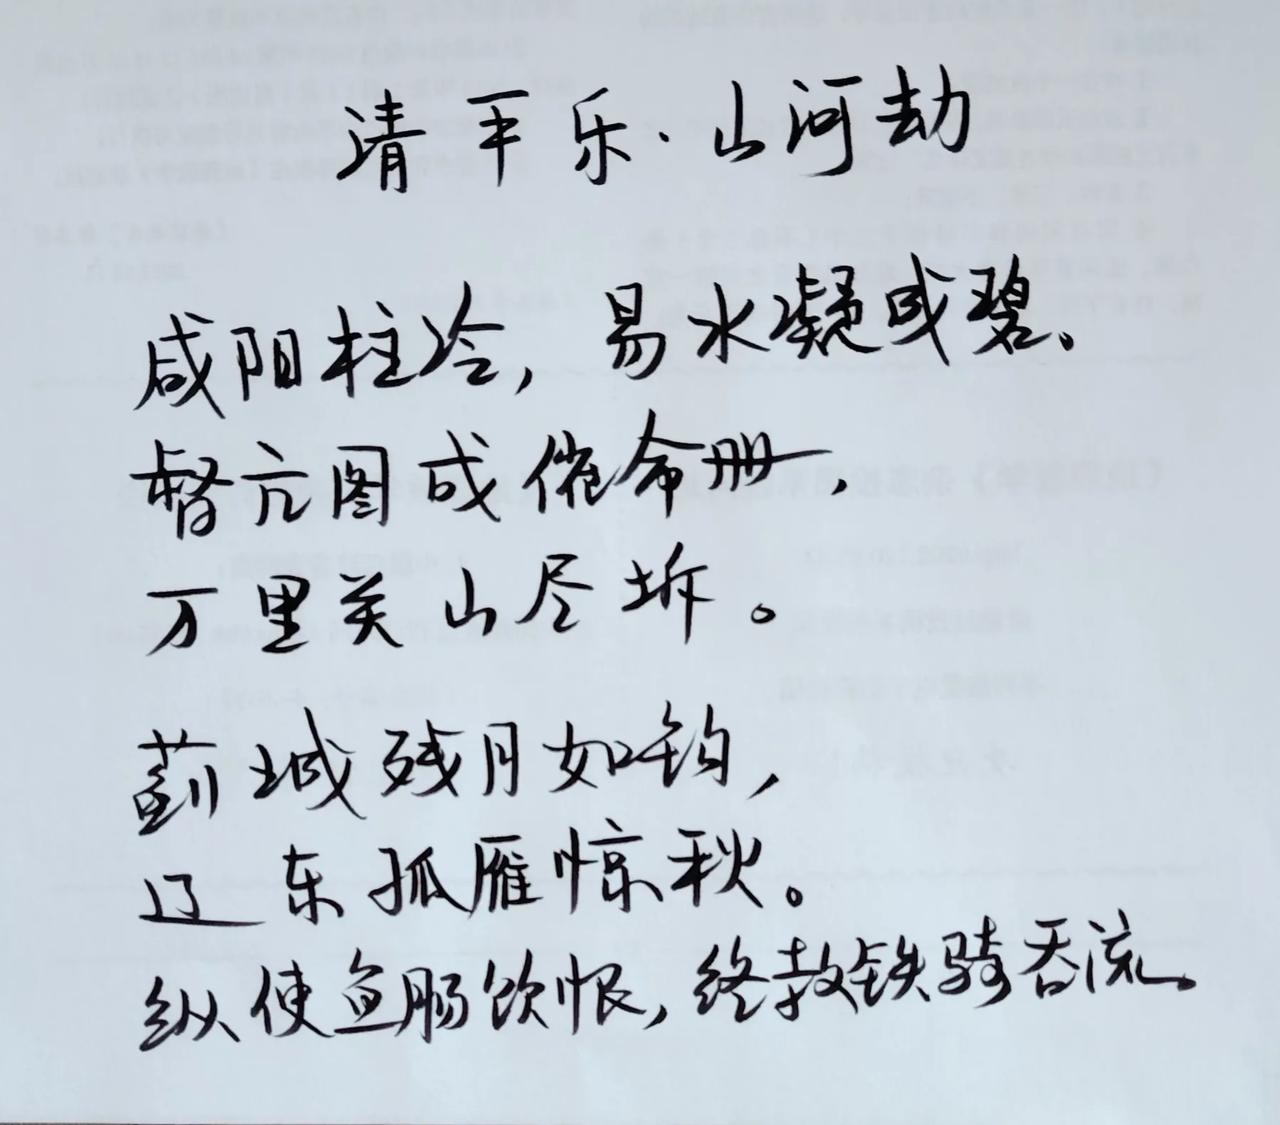 清平乐·山河劫
咸阳柱冷，易水凝成碧。
督亢图成催命册，
万里关山尽坼。
蓟城残月如钩，
辽东孤雁惊秋。
纵使鱼肠饮恨，终教铁骑吞流。